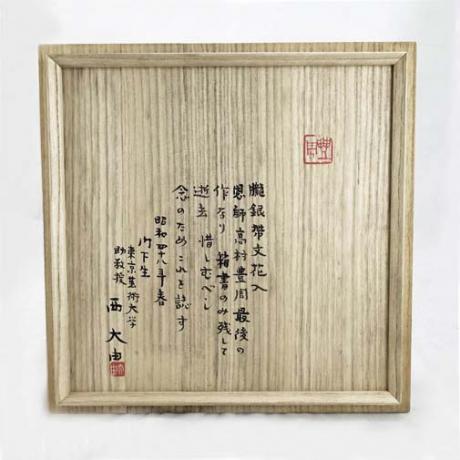 朧銀帯文花入
恩師高村豊周最後の
作なり箱書のみ残して
逝去 惜しむべし
念のためこれを誌す
昭和四十八年春
門下生
東京芸術大学
助教授
西大由